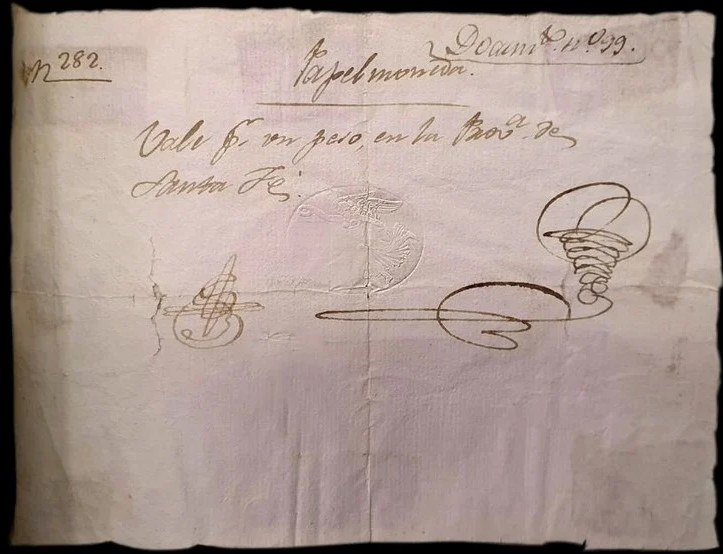 N 282.
Docum.to n.o 99.
Papel moneda.
Vale p.r un peso, en la Prov.a de
Santa Fé.